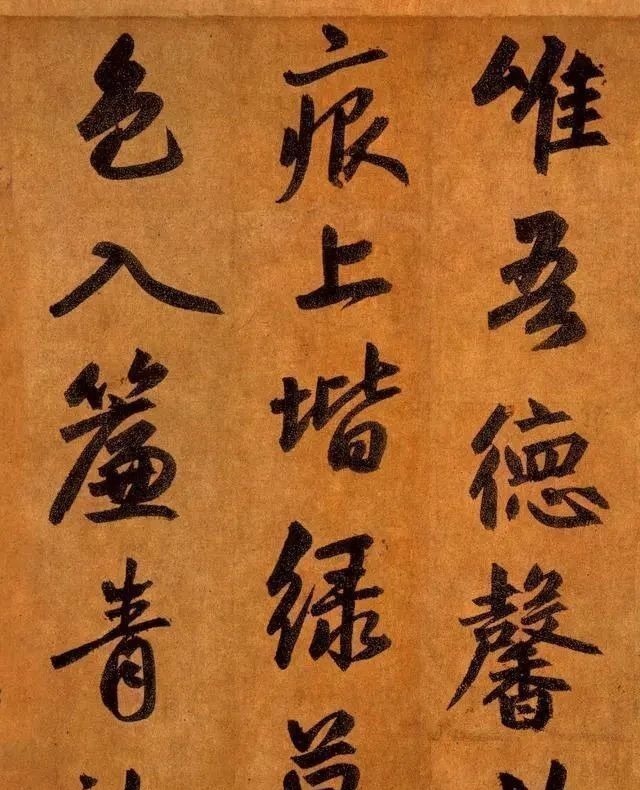 唯吾德馨
痕上堦绿
色入簾青